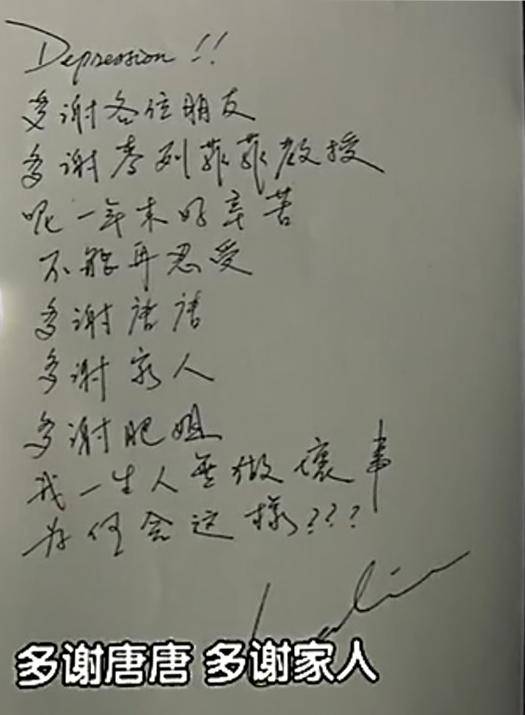 Depression!!
多谢各位朋友
多谢麥列菲菲教授
呢一年来好辛苦
不能再忍受
多谢唐唐
多谢家人
多谢肥姐
我一生人無做壞事
为何会这樣???
Leslie
多谢唐唐 多谢家人